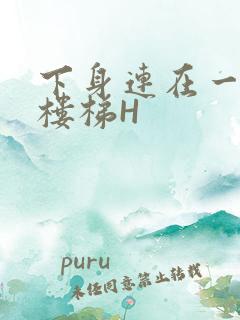 下身连在一
楼梯H
puru
未经同意禁止转载